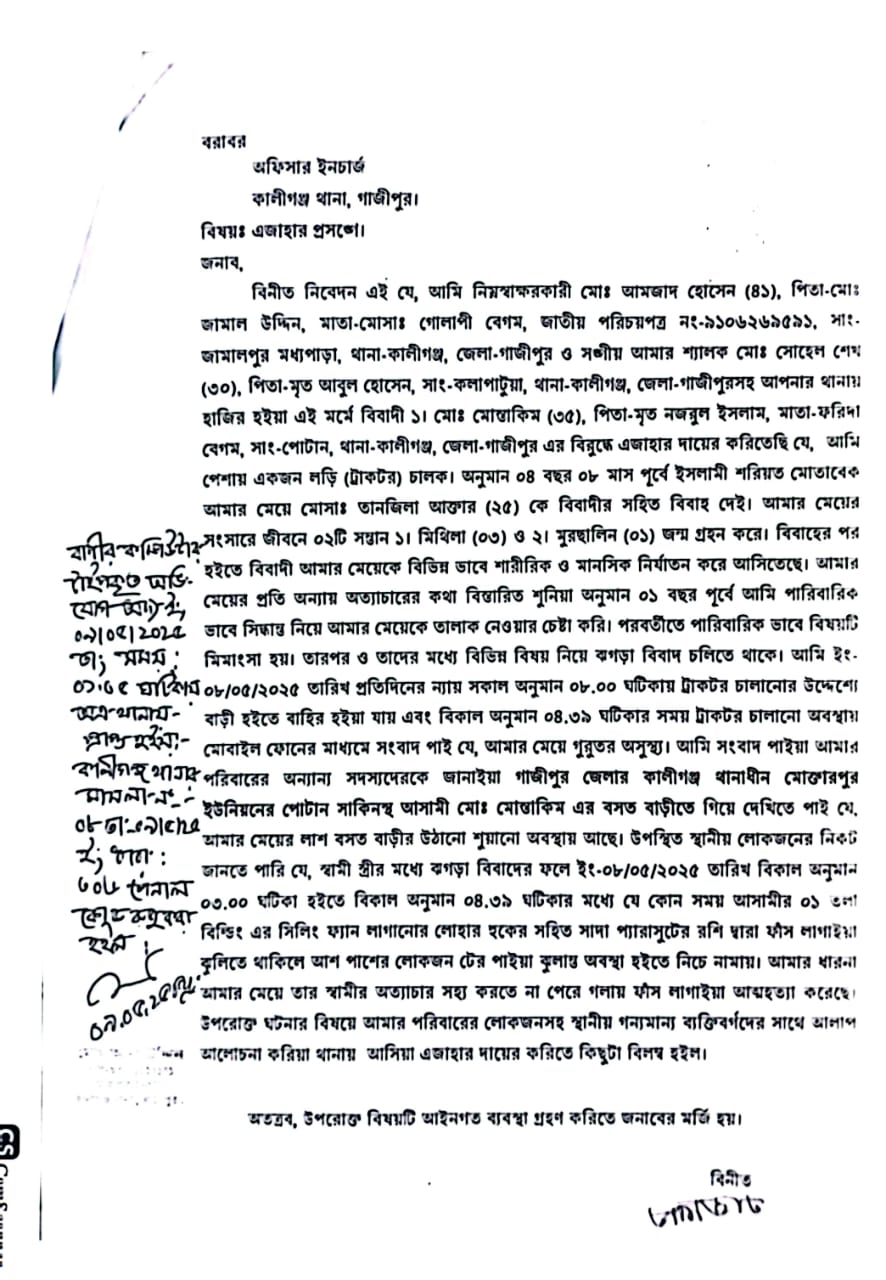 বরাবর
অফিসার ইনচার্জ
কালীগঞ্জ থানা, গাজীপুর।
বিষয়ঃ এজাহার প্রসঙ্গে।
জনাব,
বিনীত নিবেদন এই যে, আমি নিম্নস্বাক্ষরকারী মোঃ আমজাদ হোসেন (৪১), পিতা-মোঃ
জামাল উদ্দিন, মাতা-মোসাঃ গোলাপী বেগম, জাতীয় পরিচয়পত্র নং-৯১০৬২৬৯৫৯১, সাং-
জামালপুর মধ্যপাড়া, থানা-কালীগঞ্জ, জেলা-গাজীপুর ও সঙ্গীয় আমার শ্যালক মোঃ সোহেল শেখ
(৩০), পিতা-মৃত আবুল হোসেন, সাং-কলাপাটুয়া, থানা-কালীগঞ্জ, জেলা-গাজীপুরসহ আপনার থানায়
হাজির হইয়া এই মর্মে বিবাদী ১। মোঃ মোস্তাকিম (৩৫), পিতা-মৃত নজরুল ইসলাম, মাতা-ফরিদা
বেগম, সাং-পোটান, থানা-কালীগঞ্জ, জেলা-গাজীপুর এর বিরুদ্ধে এজাহার দায়ের করিতেছি যে, আমি
পেশায় একজন লড়ি (ট্রাকটর) চালক। অনুমান ০৪ বছর ০৮ মাস পূর্বে ইসলামী শরিয়ত মোতাবেক
আমার মেয়ে মোসাঃ তানজিলা আক্তার (২৫) কে বিবাদীর সহিত বিবাহ দেই। আমার মেয়ের
সংসারে জীবনে ০২টি সন্তান ১। মিথিলা (০৩) ও ২। মুরছালিন (০১) জন্ম গ্রহন করে। বিবাহের পর
হইতে বিবাদী আমার মেয়েকে বিভিন্ন ভাবে শারীরিক ও মানসিক নির্যাতন করে আসিতেছে। আমার
মেয়ের প্রতি অন্যায় অত্যাচারের কথা বিস্তারিত শুনিয়া অনুমান ০১ বছর পূর্বে আমি পারিবারিক
ভাবে সিদ্ধান্ত নিয়ে আমার মেয়েকে তালাক নেওয়ার চেষ্টা করি। পরবর্তীতে পারিবারিক ভাবে বিষয়টি
মিমাংসা হয়। তারপর ও তাদের মধ্যে বিভিন্ন বিষয় নিয়ে ঝগড়া বিবাদ চলিতে থাকে। আমি ইং-
০৮/০৫/২০২৫ তারিখ প্রতিদিনের ন্যায় সকাল অনুমান ০৮.০০ ঘটিকায় ট্রাকটর চালানোর উদ্দেশ্যে
বাড়ী হইতে বাহির হইয়া যায় এবং বিকাল অনুমান ০৪.৩৯ ঘটিকার সময় ট্রাকটর চালানো অবস্থায়
মোবাইল ফোনের মাধ্যমে সংবাদ পাই যে, আমার মেয়ে গুরুতর অসুস্থ্য। আমি সংবাদ পাইয়া আমার
পরিবারের অন্যান্য সদস্যদেরকে জানাইয়া গাজীপুর জেলার কালীগঞ্জ থানাধীন মোক্তারপুর
ইউনিয়নের পোটান সাকিনস্থ আসামী মোঃ মোস্তাকিম এর বসত বাড়ীতে গিয়ে দেখিতে পাই যে,
আমার মেয়ের লাশ বসত বাড়ীর উঠানো শুয়ানো অবস্থায় আছে। উপস্থিত স্থানীয় লোকজনের নিকট
জানতে পারি যে, স্বামী স্ত্রীর মধ্যে ঝগড়া বিবাদের ফলে ইং-০৮/০৫/২০২৫ তারিখ বিকাল অনুমান
০৩.০০ ঘটিকা হইতে বিকাল অনুমান ০৪.৩৯ ঘটিকার মধ্যে যে কোন সময় আসামীর ০১ তলা
বিল্ডিং এর সিলিং ফ্যান লাগানোর লোহার হুকের সহিত সাদা প্যারাসুটের রশি দ্বারা ফাঁস লাগাইয়া
ঝুলিতে থাকিলে আশ পাশের লোকজন টের পাইয়া ঝুলান্ত অবস্থা হইতে নিচে নামায়। আমার ধারনা
আমার মেয়ে তার স্বামীর অত্যাচার সহ্য করতে না পেরে গলায় ফাঁস লাগাইয়া আত্মহত্যা করেছে।
উপরোক্ত ঘটনার বিষয়ে আমার পরিবারের লোকজনসহ স্থানীয় গন্যমান্য ব্যক্তিবর্গদের সাথে আলাপ
আলোচনা করিয়া থানায় আসিয়া এজাহার দায়ের করিতে কিছুটা বিলম্ব হইল।
অতএব, উপরোক্ত বিষয়টি আইনগত ব্যবস্থা গ্রহণ করিতে জনাবের মর্জি হয়।
বিনীত
আমজাদ
বাদীর কম্পিউটার
টাইপকৃত অভি-
যোগ অদ্য ইং
০৯/০৫/২০২৫
তাং সময়:
ঘটিকায়
অত্র থানায়
প্রাপ্ত হইয়া
কালীগঞ্জ থানার
মামলা নং-
০৮ তাং-০৯/৫/২৫
ইং ধারা:
৩০৬ পেনাল
কোড রুজু করা
হইল।
০৯.০৫.২৫ ইং
CS